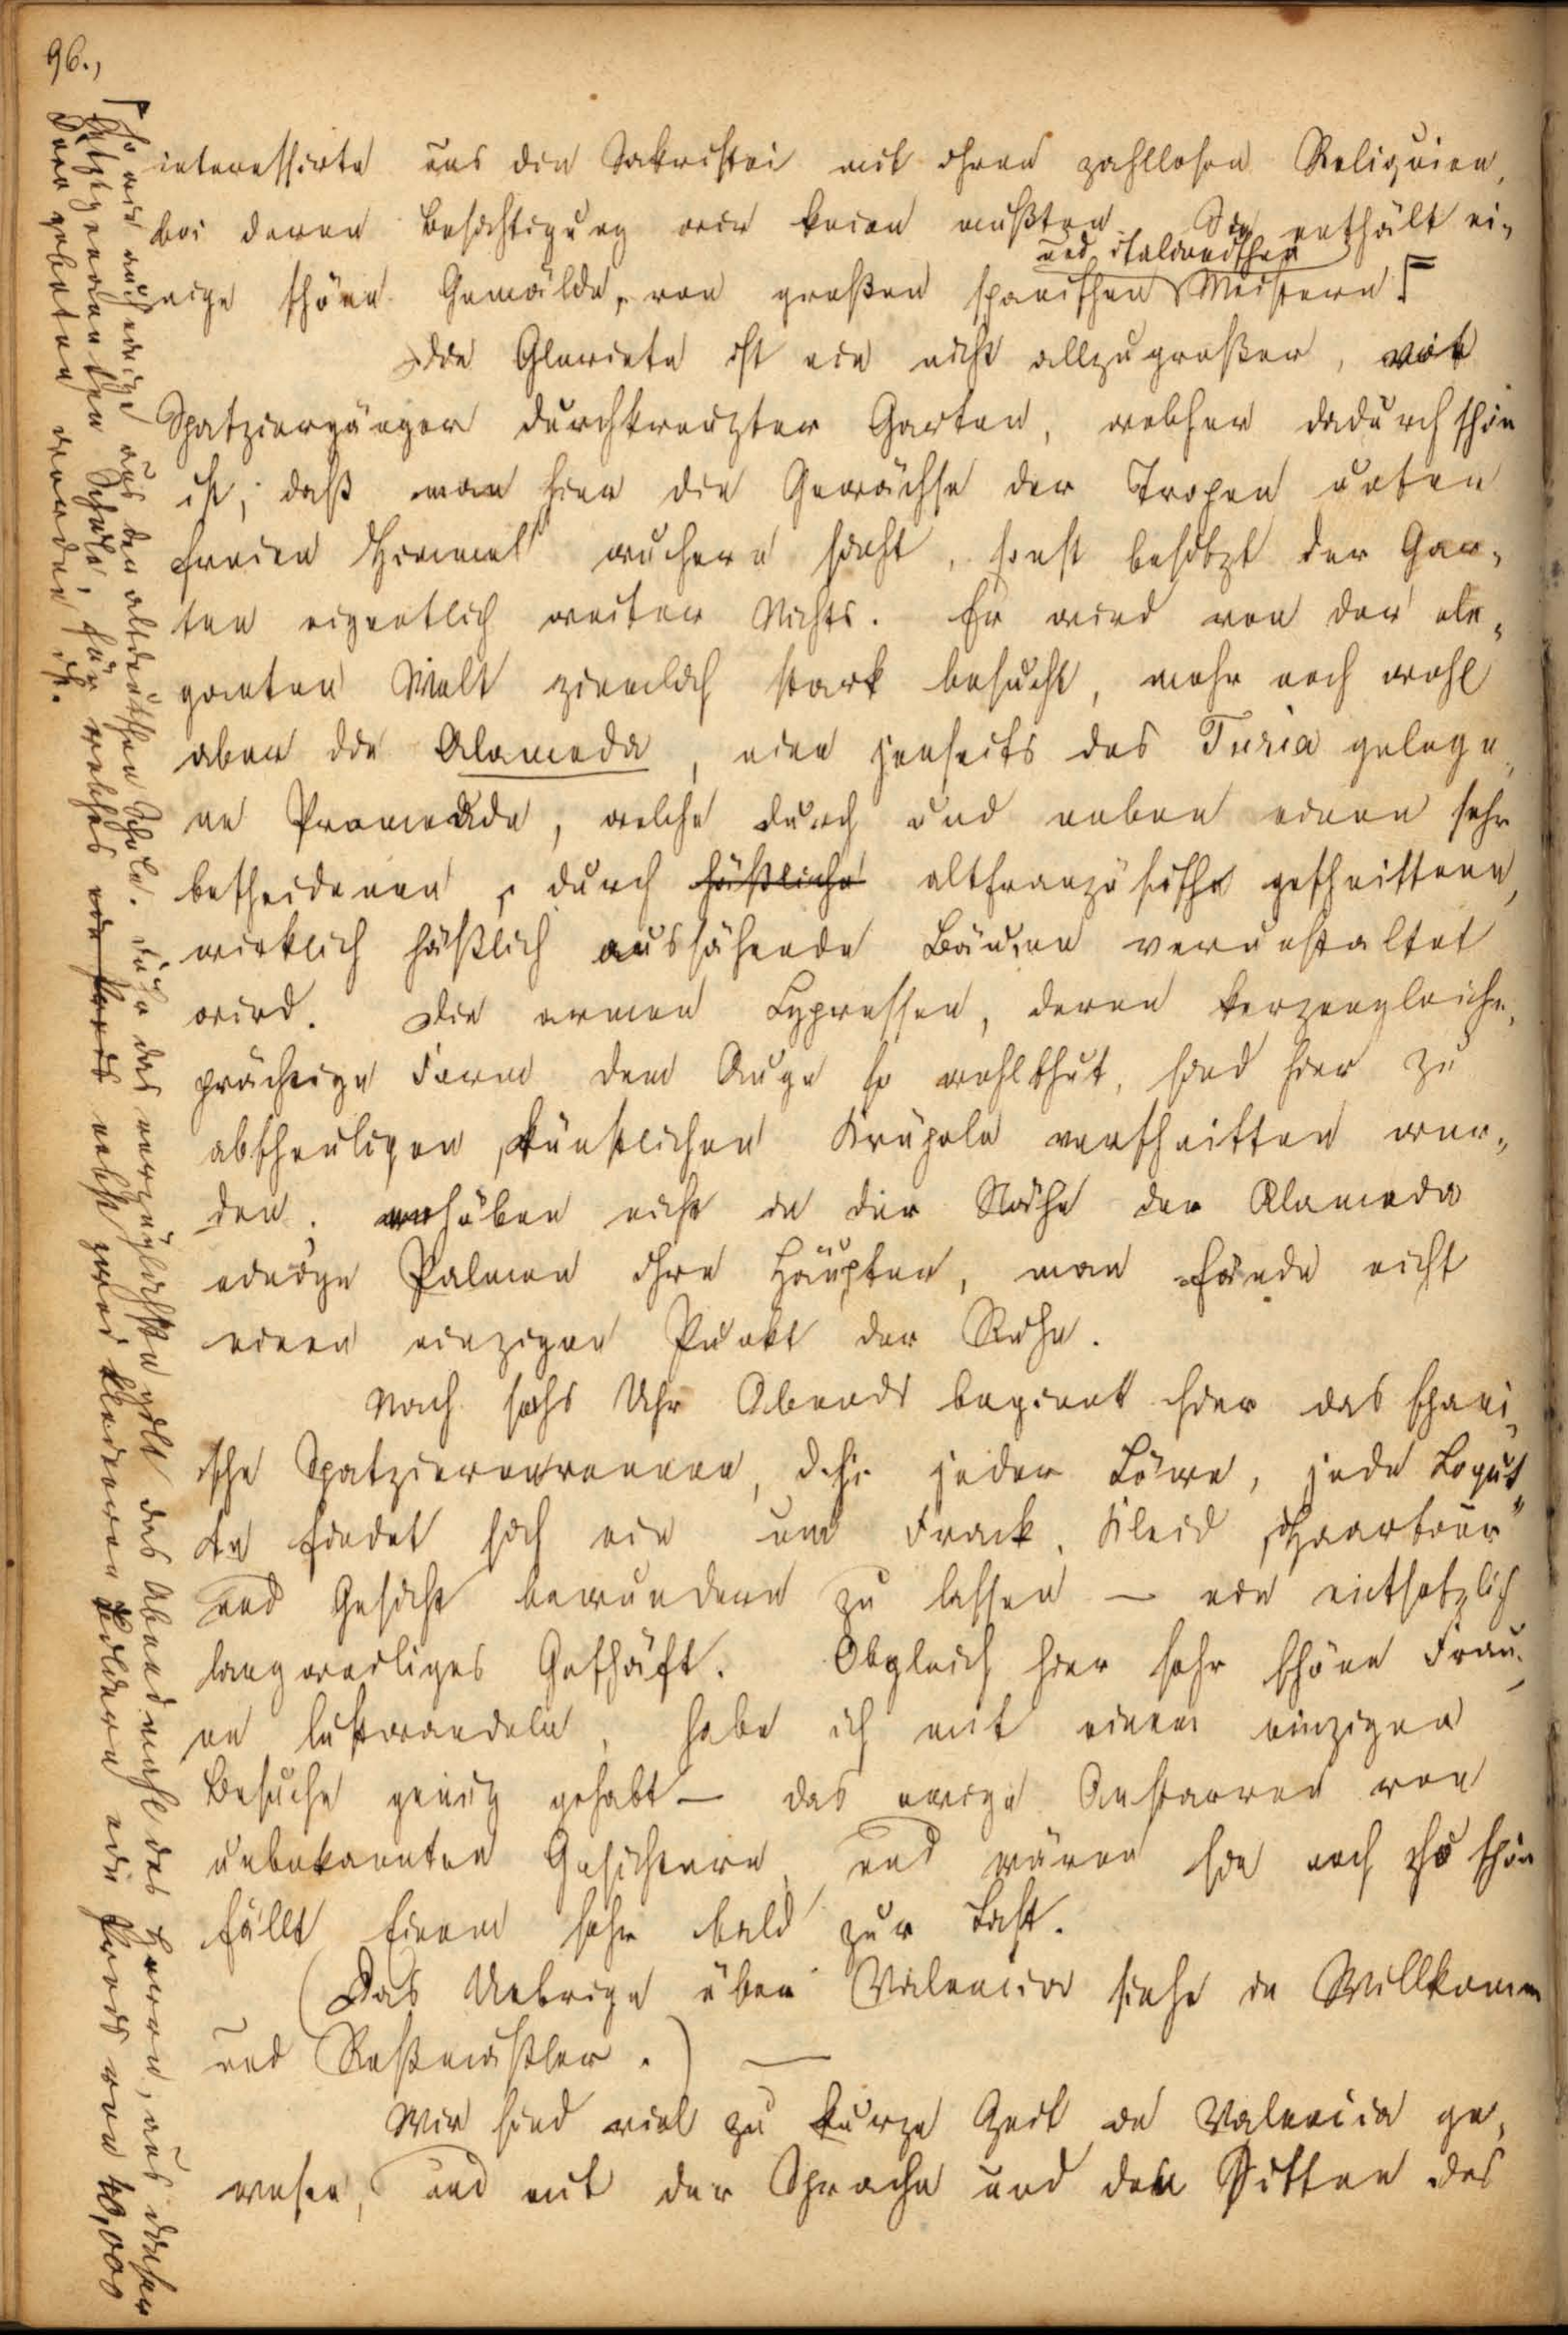 96.,
interessirte uns die Sakristei mit ihren zahllosen Reliquien,
bei deren Besichtigung wir knien mußten. Sie enthält ei-
und italienischen
nige schöne Gemälde, von großen spanischen Meistern!
Die Glorieta ist ein nicht allzugroßer, mit
Spatziergänger durchkreuzter Garten, welcher dadurch schön
ist, daß man hier die Gewächse der Tropen unter
freien Himmel wuchern sieht, sonst besitzt der Gar-
ten eigentlich weiter Nichts. Er wird von der ele-
ganten Welt ziemlich stark besucht, mehr noch wohl
aber die Alameda, eine jenseits des Turia gelege-
ne Promenade, welche durch und neben einen sehr
bescheidenen, durch häßliche altfranzösische geschnittene,
wirklich häßlich aussähende Bäume verunstaltet
wird. Die armen Cypressen, deren kerzengleiche,
prächtige Form dem Auge so wohlthut, sind hier zu
abscheuligen, künstlichen Krüpeln verschnitten wor-
den; erhüben nicht in der Nähe der Alameda
einige Palmen ihre Häupter, man fände nicht
einen einzigen Punkt der Ruhe.
Nach sechs Uhr Abends beginnt hier das spani-
sche Spatzierenrennen, d. h. jeder Löwe, jede Coquet-
te findet sich ein um Frack, Kleid, Haartour
und Gesicht bewundern zu lassen – ein entsetzlich
langweiliges Geschäft. Obgleich hier sehr schöne Frau-
en lustwandeln, habe ich mit einem einzigen
Besuche genug gehabt – das ewige Anstarren von
unbekannten Gesichtern, und wären sie noch so schön
fällt Einem sehr bald zur Last.
(Das Uebrige über Valencia siehe in Willkomm
und Roßmäßler.) —
Wir sind viel zu kurze Zeit in Valencia ge-
wesen, und mit der Sprache und den Sitten des
So wie auch einige aus der altdeutschen Schule. Für das vorzüglichste gilt das Abendmahl des Herrn, aus dieser
letztgenannten Schule, für welches ein Preis nebst zwei kleineren Bildern ein Preis von 40,000
geboten worden ist.